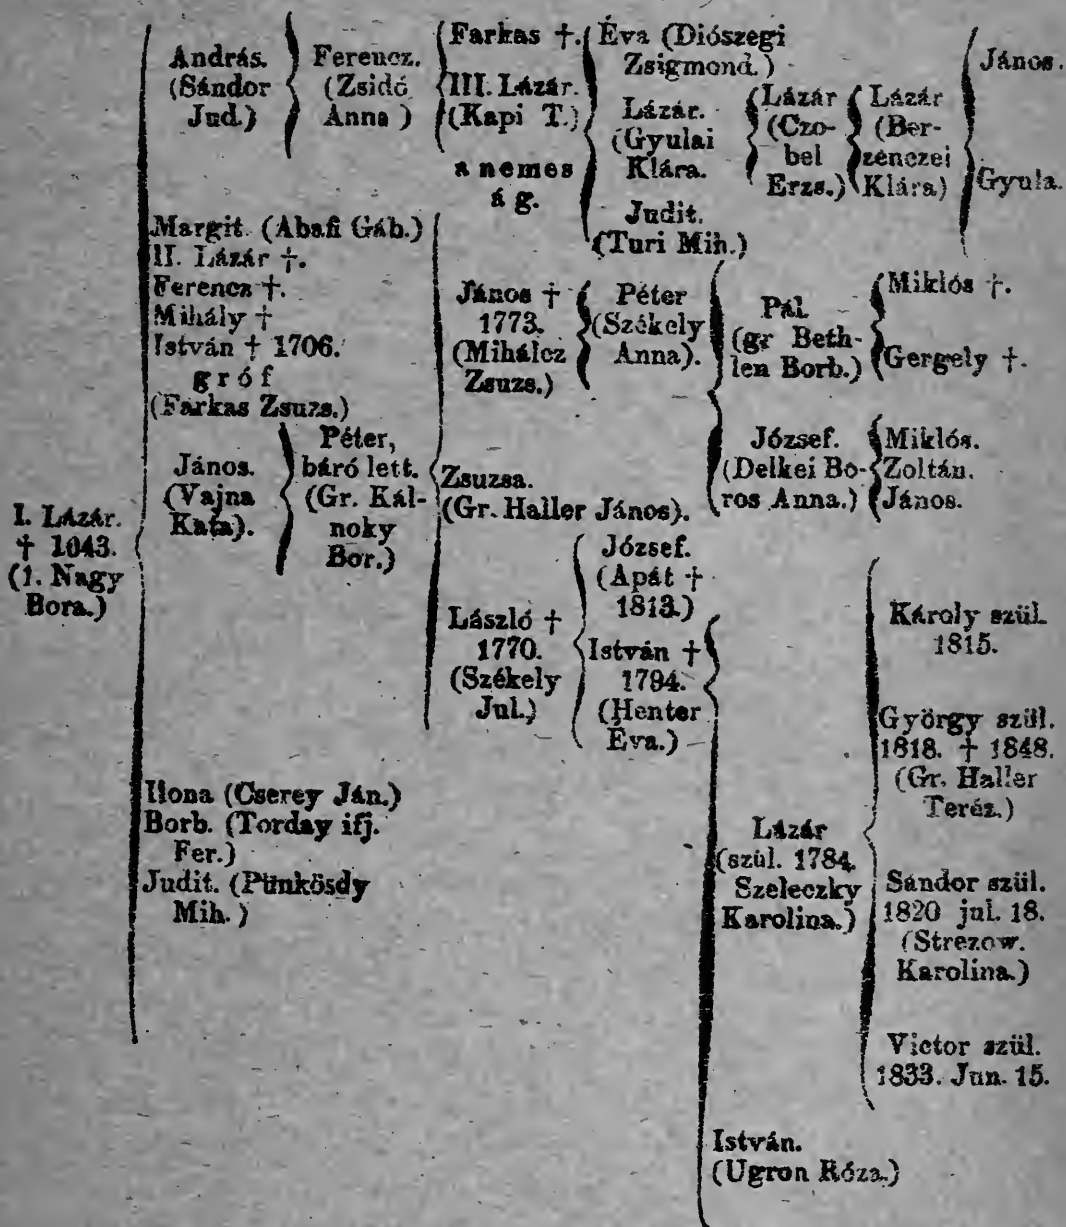 András.
(Sándor
Jud.)
Ferencz.
(Zsidó
Anna )
Farkas †.
III. Lázár.
(Kapi T.)
a nemes
á g.
Éva (Diószegi
Zsigmond.)
Lázár.
(Gyulai
Klára.
Judit.
(Turi Mih.)
Lázár
(Czo-
bel
Erzs.)
Lázár
(Ber-
zenczei
Klára)
János.
Gyula.
Margit. (Abafi Gáb.)
II. Lázár †.
Ferencz †.
Mihály †
István † 1706.
g r ó f
(Farkas Zsuzs.)
János.
(Vajna
Kata).
Péter,
báró lett.
(Gr. Kál-
noky
Bor.)
János †
1773.
(Mihálcz
Zsuzs.)
Péter
(Székely
Anna).
Pál.
(gr Beth-
len Borb.)
Miklós †.
Gergely †.
József.
(Delkei Bo-
ros Anna.)
Miklós.
Zoltán.
János.
Zsuzsa.
(Gr. Haller János).
I. Lázár.
† 1043.
(1. Nagy
Bora.)
László †
1770.
(Székely
Jul.)
József.
(Apát †
1813.)
István †
1794.
(Henter
Éva.)
Károly szül.
1815.
György szül.
1818. † 1848.
(Gr. Haller
Teréz.)
Lázár
(szül. 1784.
Szeleczky
Karolina.)
Sándor szül.
1820 jul. 18.
(Strezow.
Karolina.)
Victor szül.
1833. Jun. 15.
István.
(Ugron Róza.)
Ilona (Cserey Ján.)
Borb. (Torday ifj.
Fer.)
Judit. (Pünkösdy
Mih.)